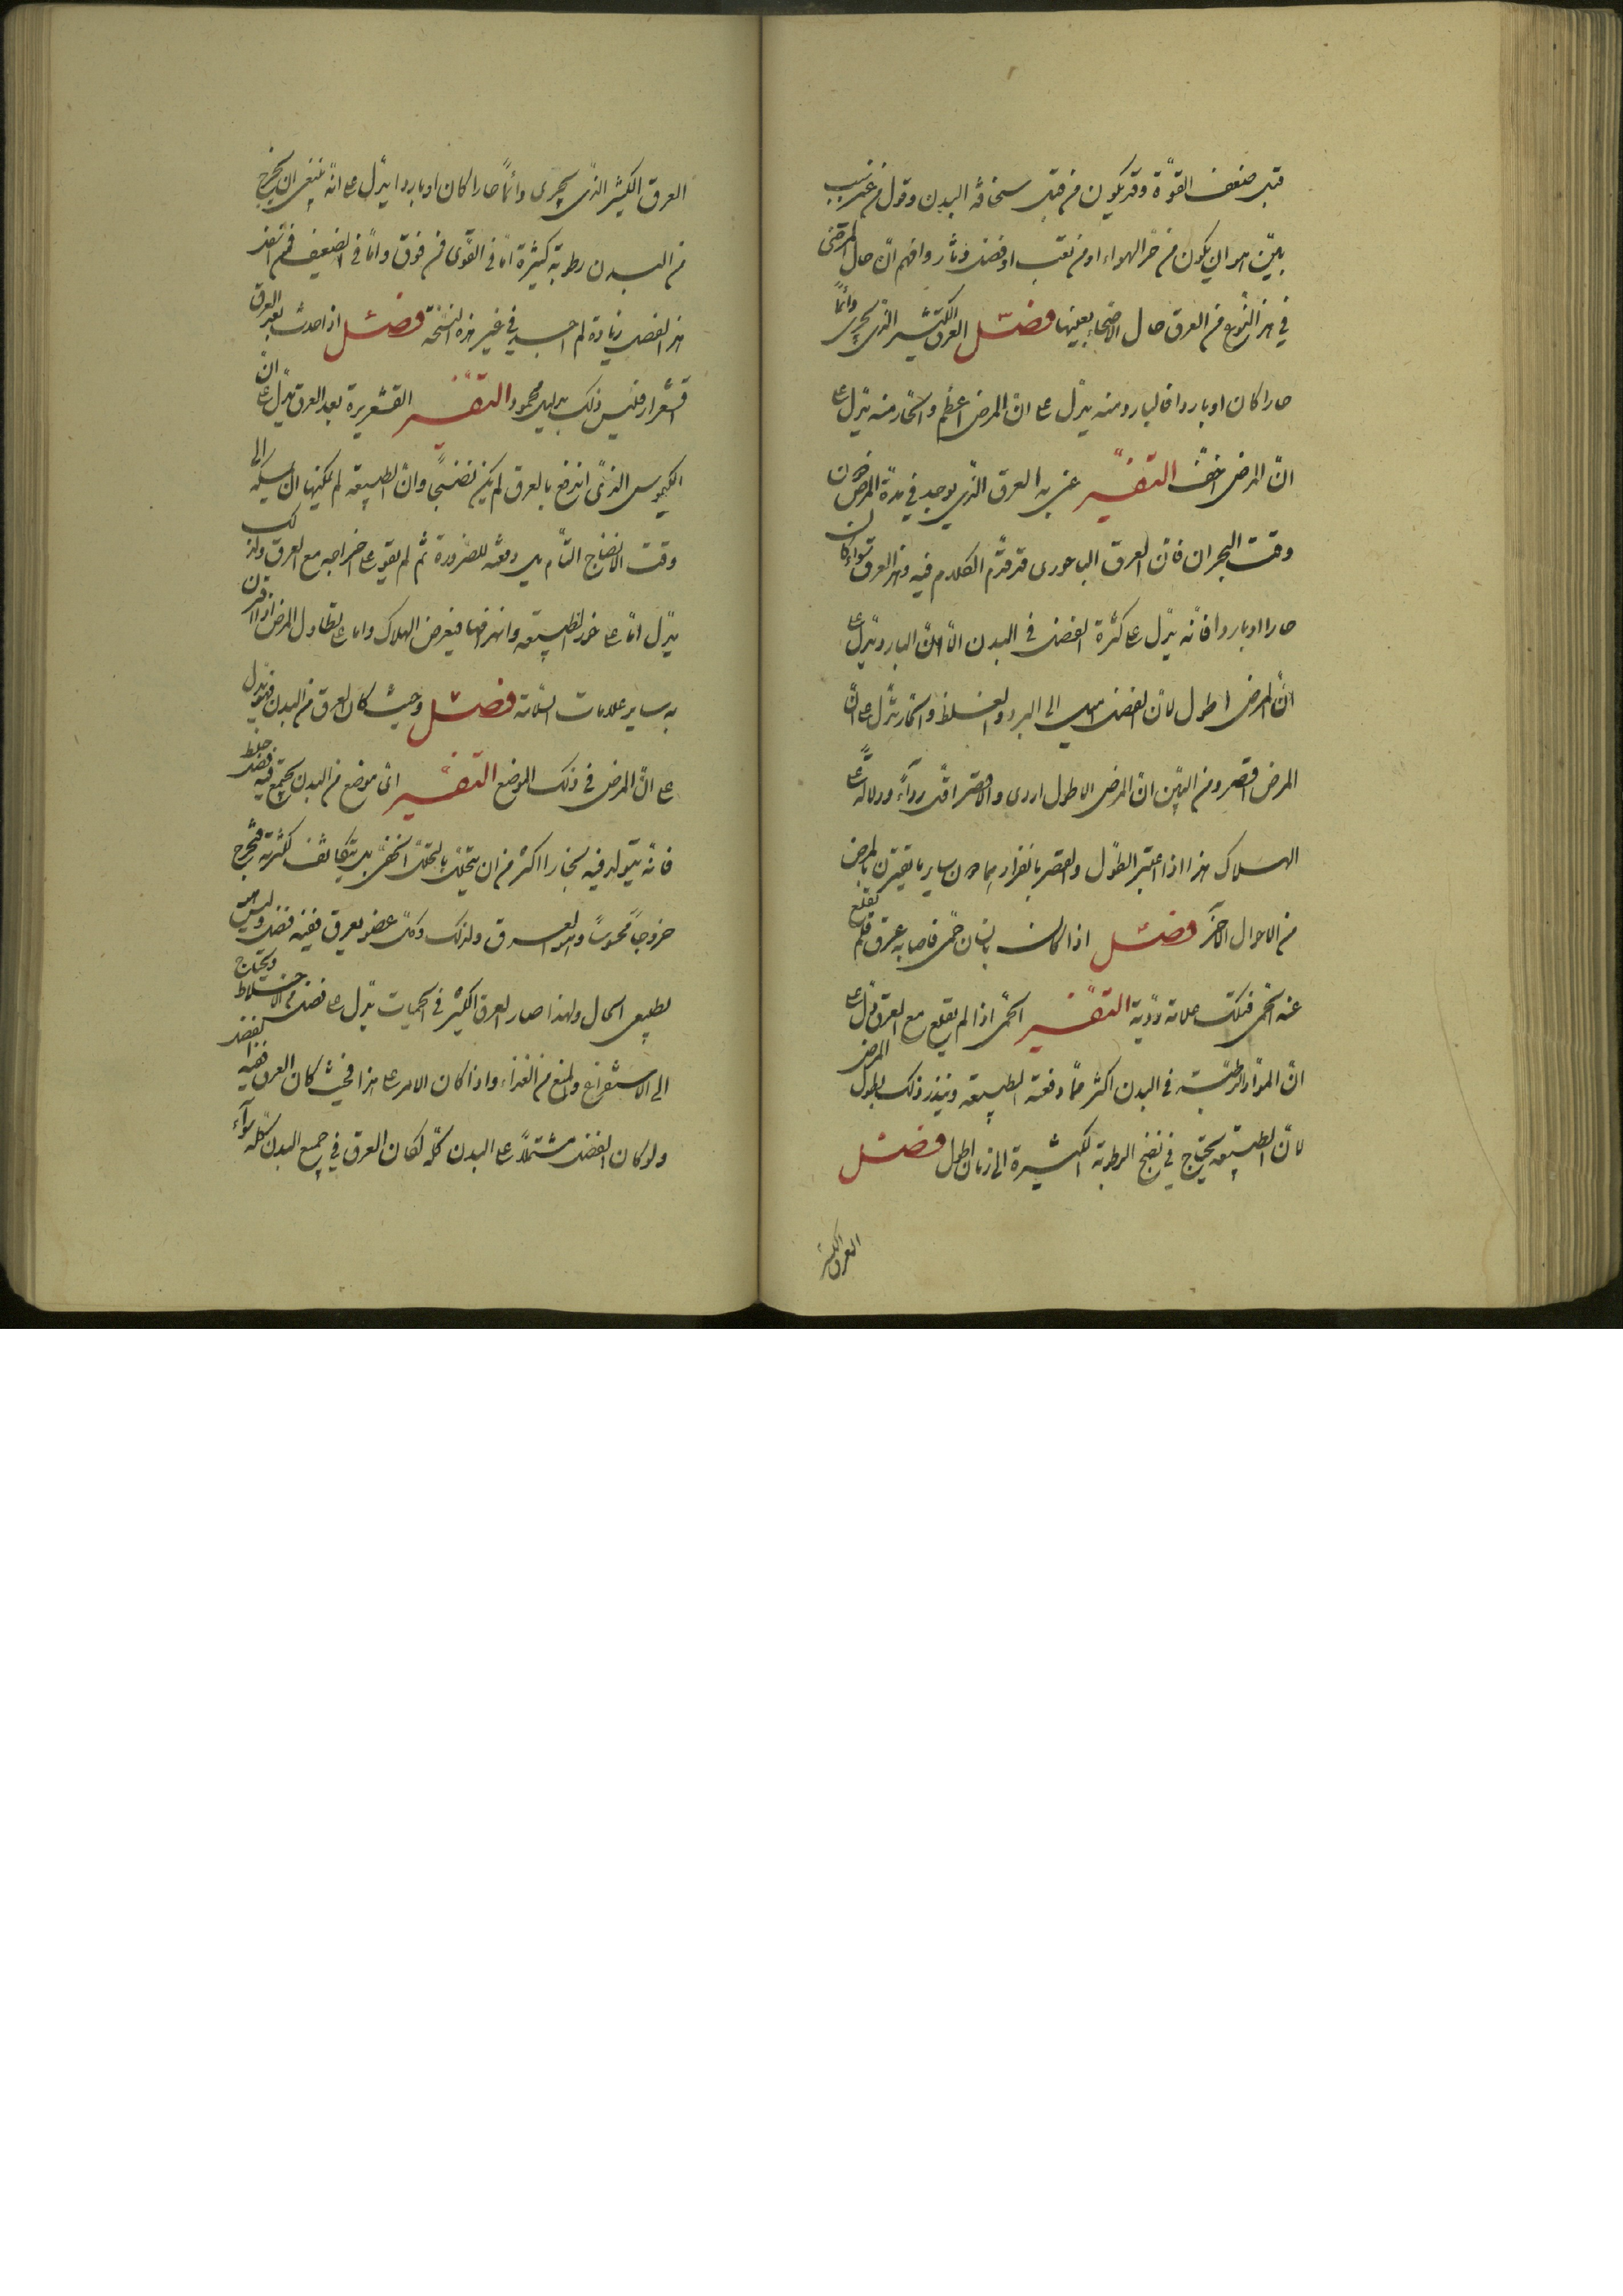 قبل ضعف القوة وقد يكون من قبل سخافة البدن وقول من غير سبب
بيّن هو ان يكون من حر الهواء او من تعب او فضل دثار وافهم ان حال المرضى
في هذا النوع من العرق حال الاصحاء بعينها فصل العرق الكثير الذى يجرى دائما
حارا كان او باردا فالبارد منه يدل على ان المرض اعظم والحار منه يدل على
ان المرض اخف التفسير عنى به العرق الذى يوجد في مدة المرض دون
وقت البحران فان العرق الباحورى قد قدم الكلام فيه وهذا العرق سواء كان
حارا او باردا فانه يدل على كثرة الفضل في البدن الا ان البارد يدل على
ان المرض اطول لان الفضل اميل الى البرد والغلظ والحار يدل على ان
المرض اقصر ومن البين ان المرض الاطول اردى والاقصر اقل رداءة ودلالة على
الهلاك هذا اذا اعتبر الطول والقصر بانفراد هما دون ساير ما يقترن بالمرض
من الاحوال الاخر فصل اذا كانت بانسان حمى فاصابه عرق فلم تقلع
عنه الحمى فتلك علامة ردية التفسير الحمى اذا لم تقلع مع العرق تدل على
ان المواد الرطبة في البدن اكثر مما دفعته الطبيعة وينذر ذلك بطول المرض
لان الطبيعة يحتاج في نضج الرطوبة الكثيرة الى زمان اطول فصل
العرق الكثير
العرق الكثير الذى يجرى دائما حارا كان او باردا يدل على انه ينبغى ان يخرج
من البدن رطوبة كثيرة اما في القوى فمن فوق واما في الضعيف فمن اسفل
هذا الفصل زيادة لم اجد في غير هذه النسخة فصل اذا حدث بعد العرق
قشعرار فليس ذلك بدليل محمود التفسير القشعريرة بعد العرق تدل على ان
الكيموس الذى اندفع بالعرق لم يكن نضيجا وان الطبيعة لم يمكنها ان يمسكه الى
وقت الانضاج التام بل دفعته للضرورة ثم لم تقو على اخراجه مع العرق وذلك
يدل اما على خور الطبيعة وانهزامها فيعرض الهلاك واما على تطاول المرض اذا اقترن
به ساير علامات السلامة فصل وحيث كان العرق من البدن فهو يدل
على ان المرض في ذلك الموضع التفسير اى موضع من البدن يجتمع فيه فضل خلط
فانه يتولد فيه بخارا اكثر من ان يتحلل بالتحلل الخفى بل يتكاثف لكثرته فيخرج
خروجا محسوسا وهو العرق ولذلك فكل عضو يعرق ففيه فضل وليس هو
بطبيعى الحال ولهذا صار العرق الكثير في الحميات يدل على فضل من الاخلاط ويحتاج
الى الاستفراغ والمنع من الغذاء واذا كان الامر على هذا فحيث كان العرق ففيه الفضل
ولو كان الفضل مشتملا على البدن كله لكان العرق في جميع البدن كله سواء